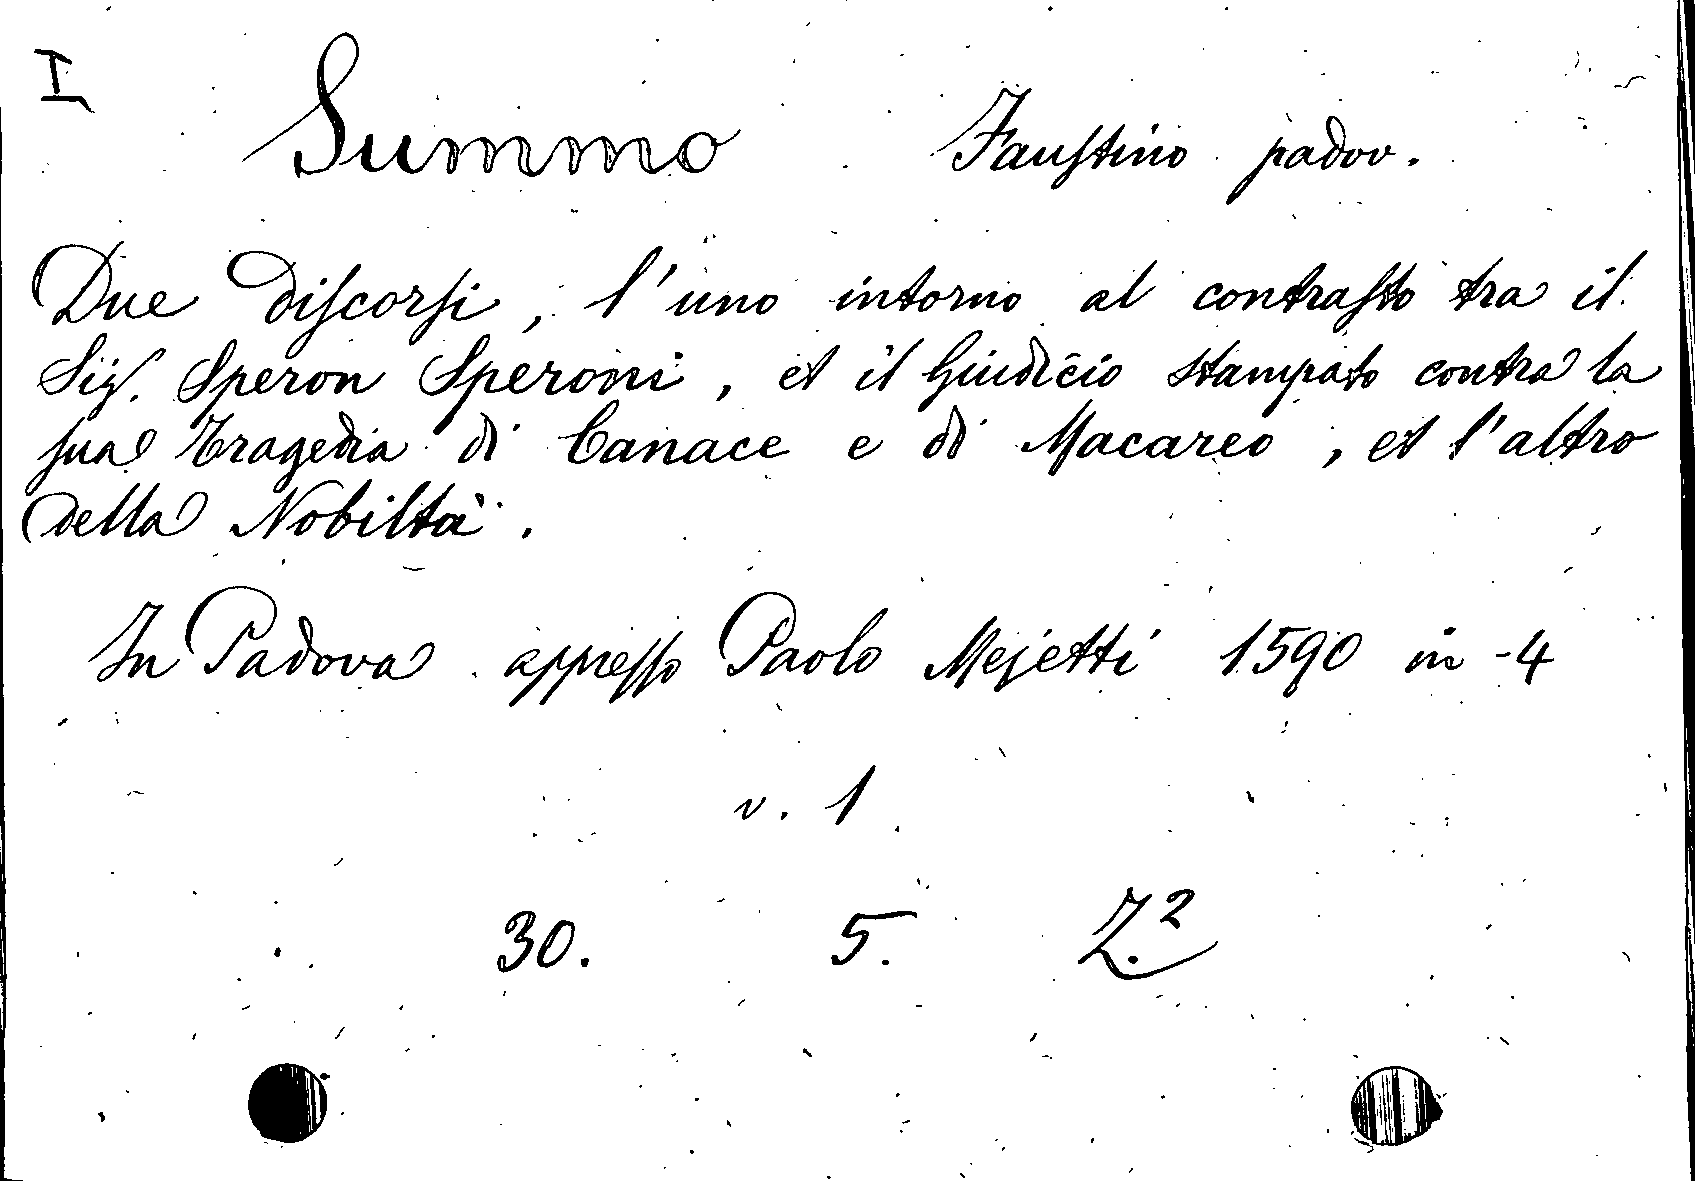 I
Summo Faustino padov.
Due discorsi, l'uno intorno al contrasto tra il
Sig. Speron Speroni, et il Giudicio stampato contra la
sua Tragedia di Canace e di Macareo, et l'altro
della Nobiltà.
In Padova appresso Paolo Mejetti 1590 in-4
v. 1
30. 5. Z.²